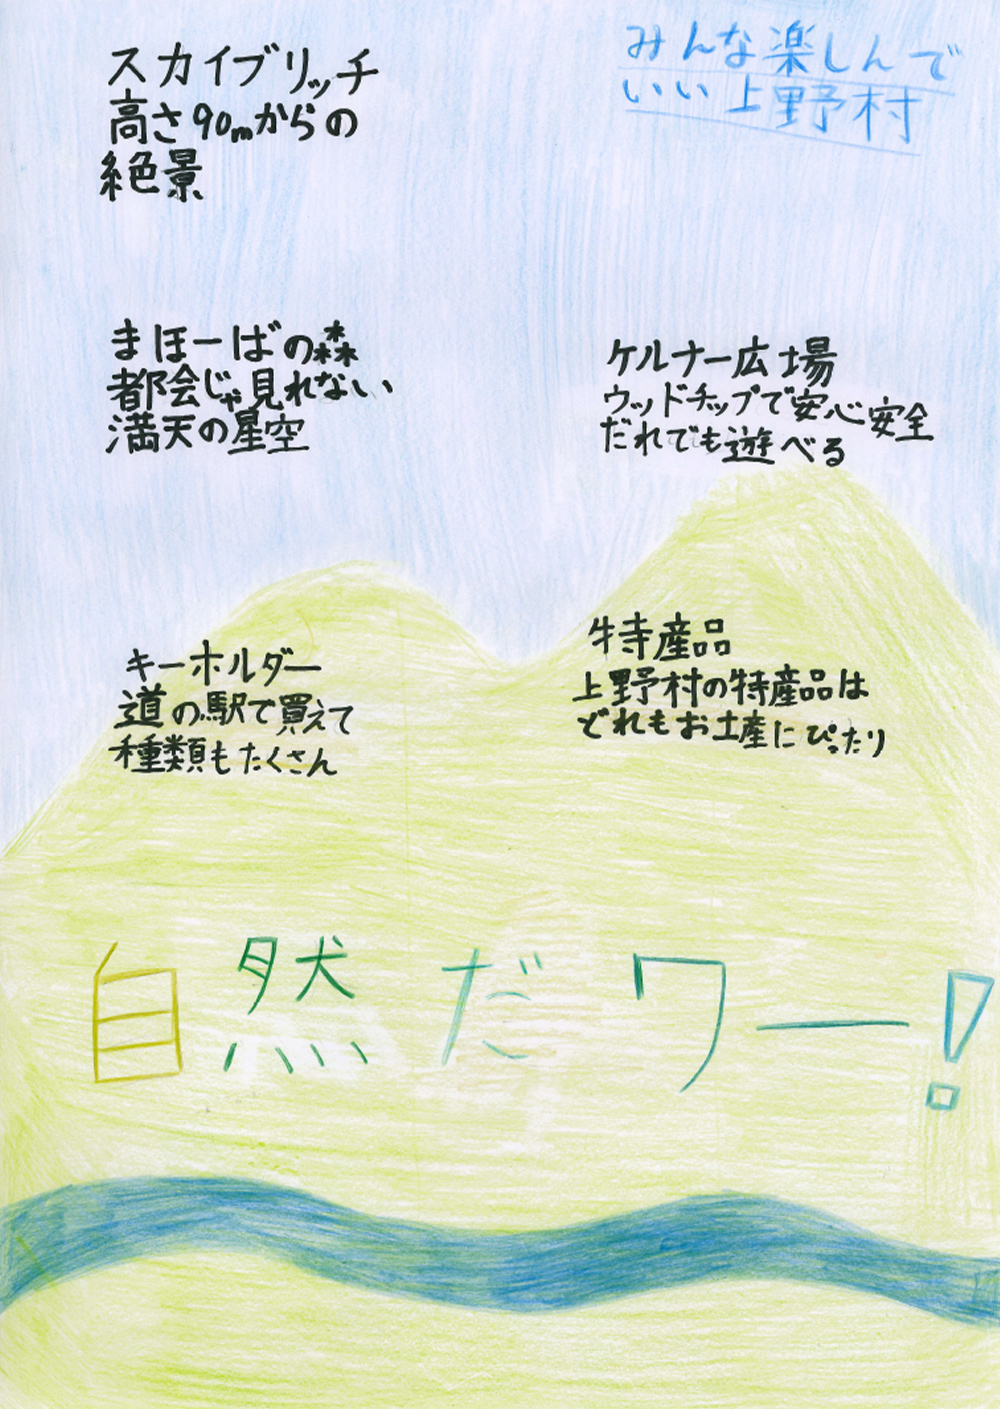 みんな楽しんで
いい上野村
スカイブリッチ
高さ90mからの
絶景
まほーばの森
都会じゃ見れない
満天の星空
ケルナー広場
ウッドチップで安心安全
だれでも遊べる
キーホルダー
道の駅で買えて
種類もたくさん
特産品
上野村の特産品は
どれもお土産にぴったり
自然だワー!